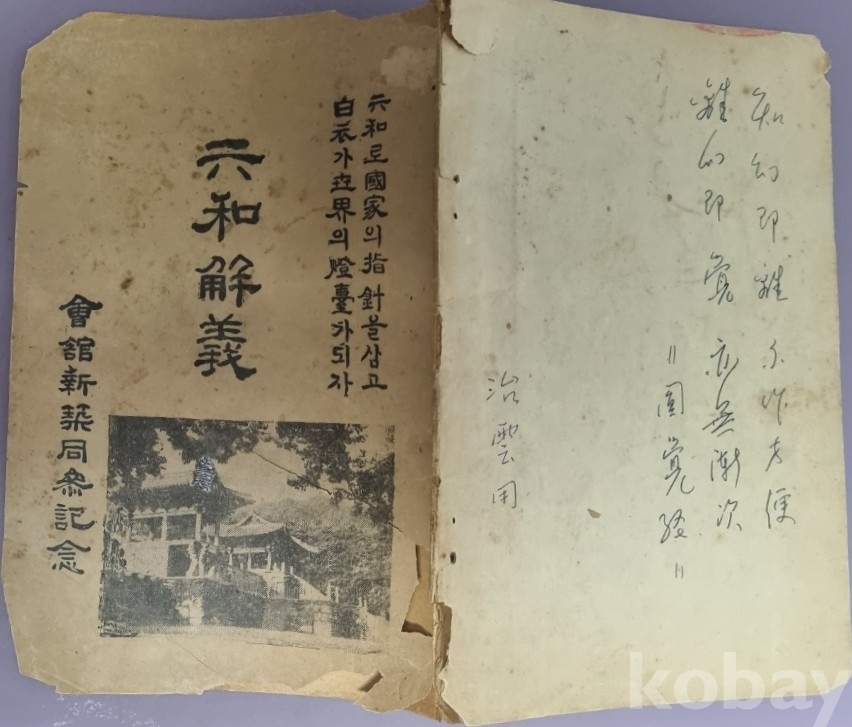 六和로國家의指針을삼고
白衣가世界의燈臺가되자
六和解義
會舘新築同參記念
知幻即離不作方便
離幻即覺亦無漸次
"圓覺経"
治雲用
kobay